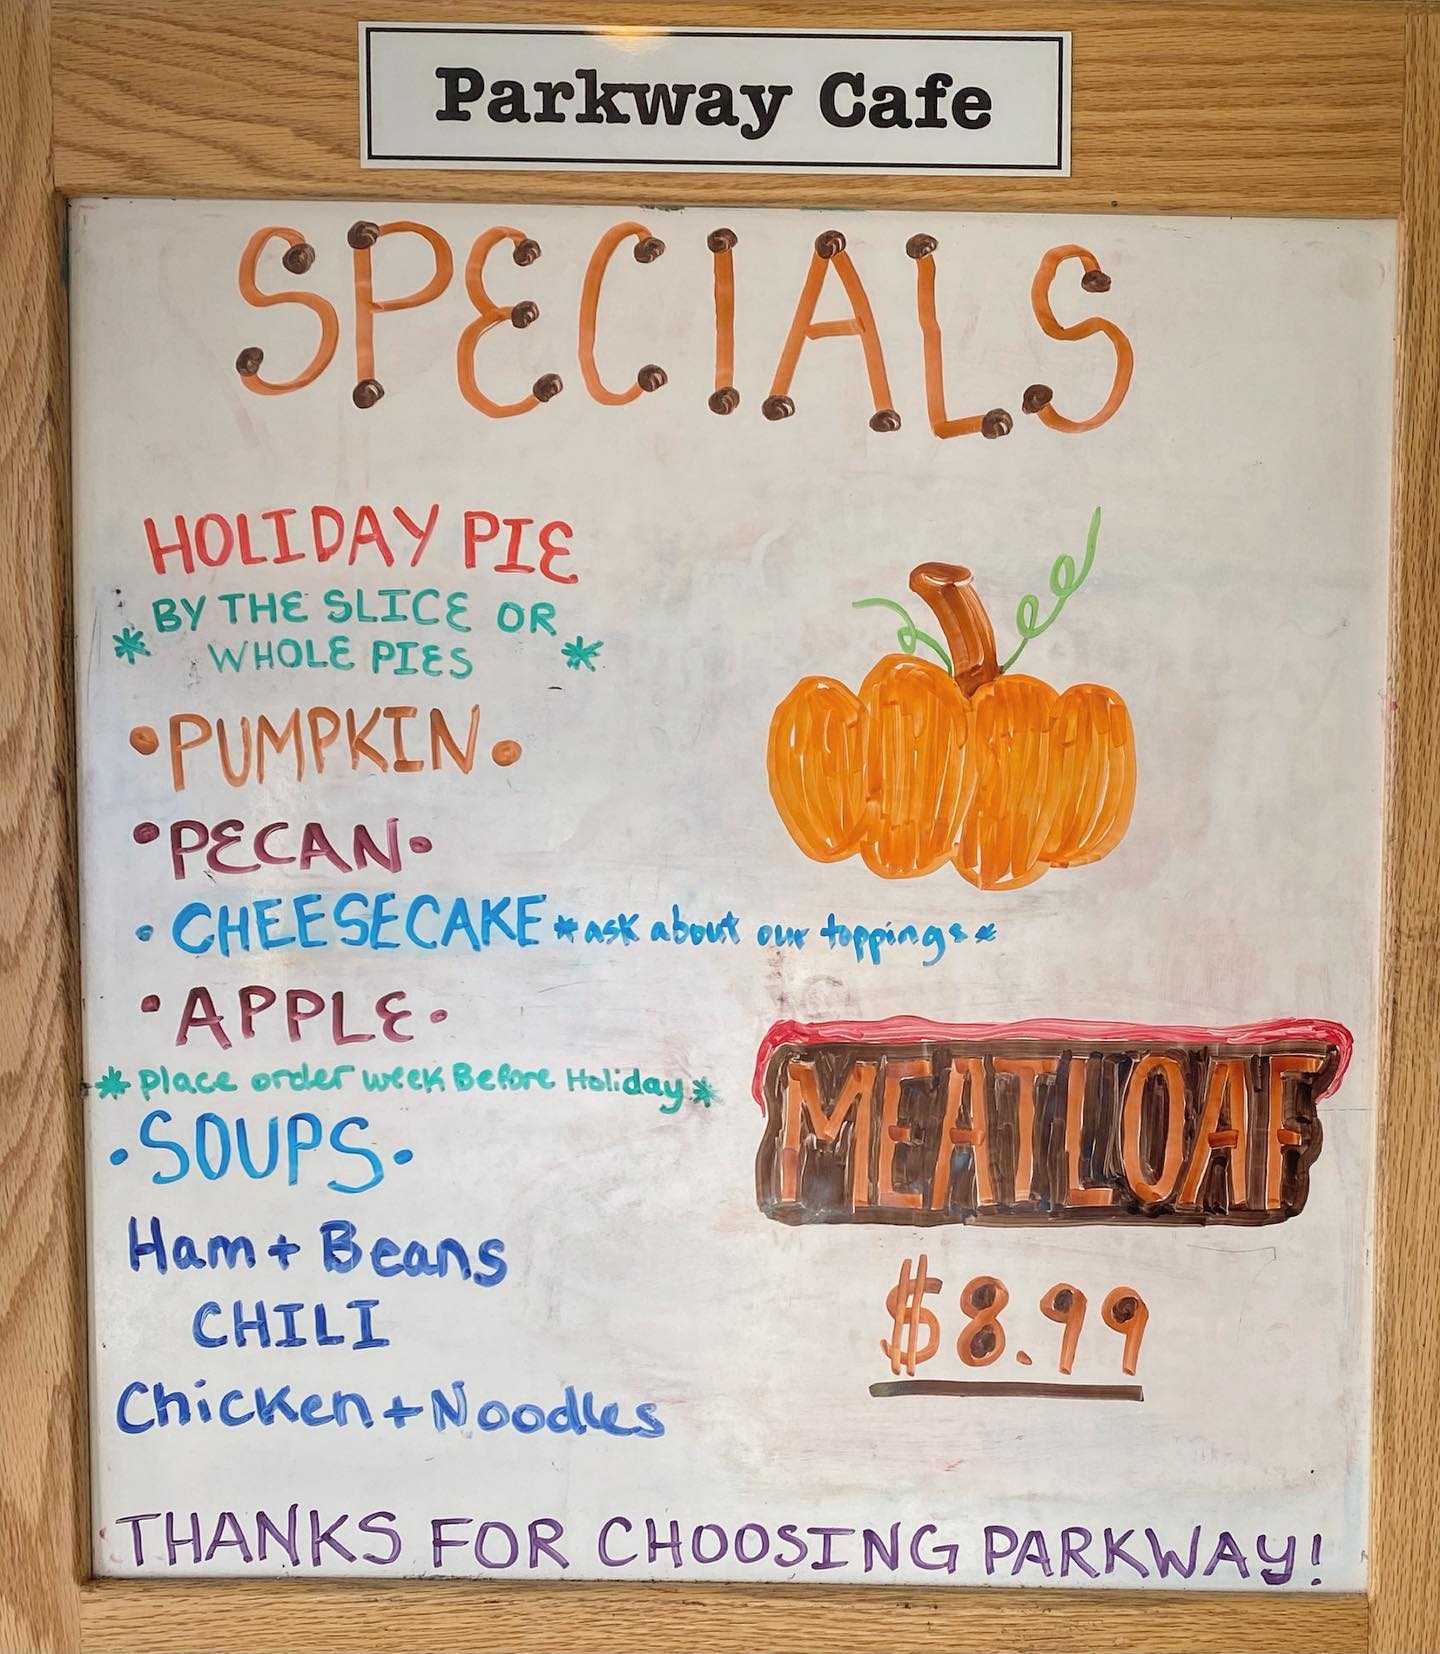 Parkway Cafe
SPECIALS
HOLIDAY PIE
BY THE SLICE OR
* WHOLE PIES *
•PUMPKIN•
•PECAN•
• CHEESECAKE *ask about our toppings*
•APPLE•
*Place order week Before Holiday*
•SOUPS•
Ham + Beans
CHILI
Chicken + Noodles
MEATLOAF
$8.99
THANKS FOR CHOOSING PARKWAY!